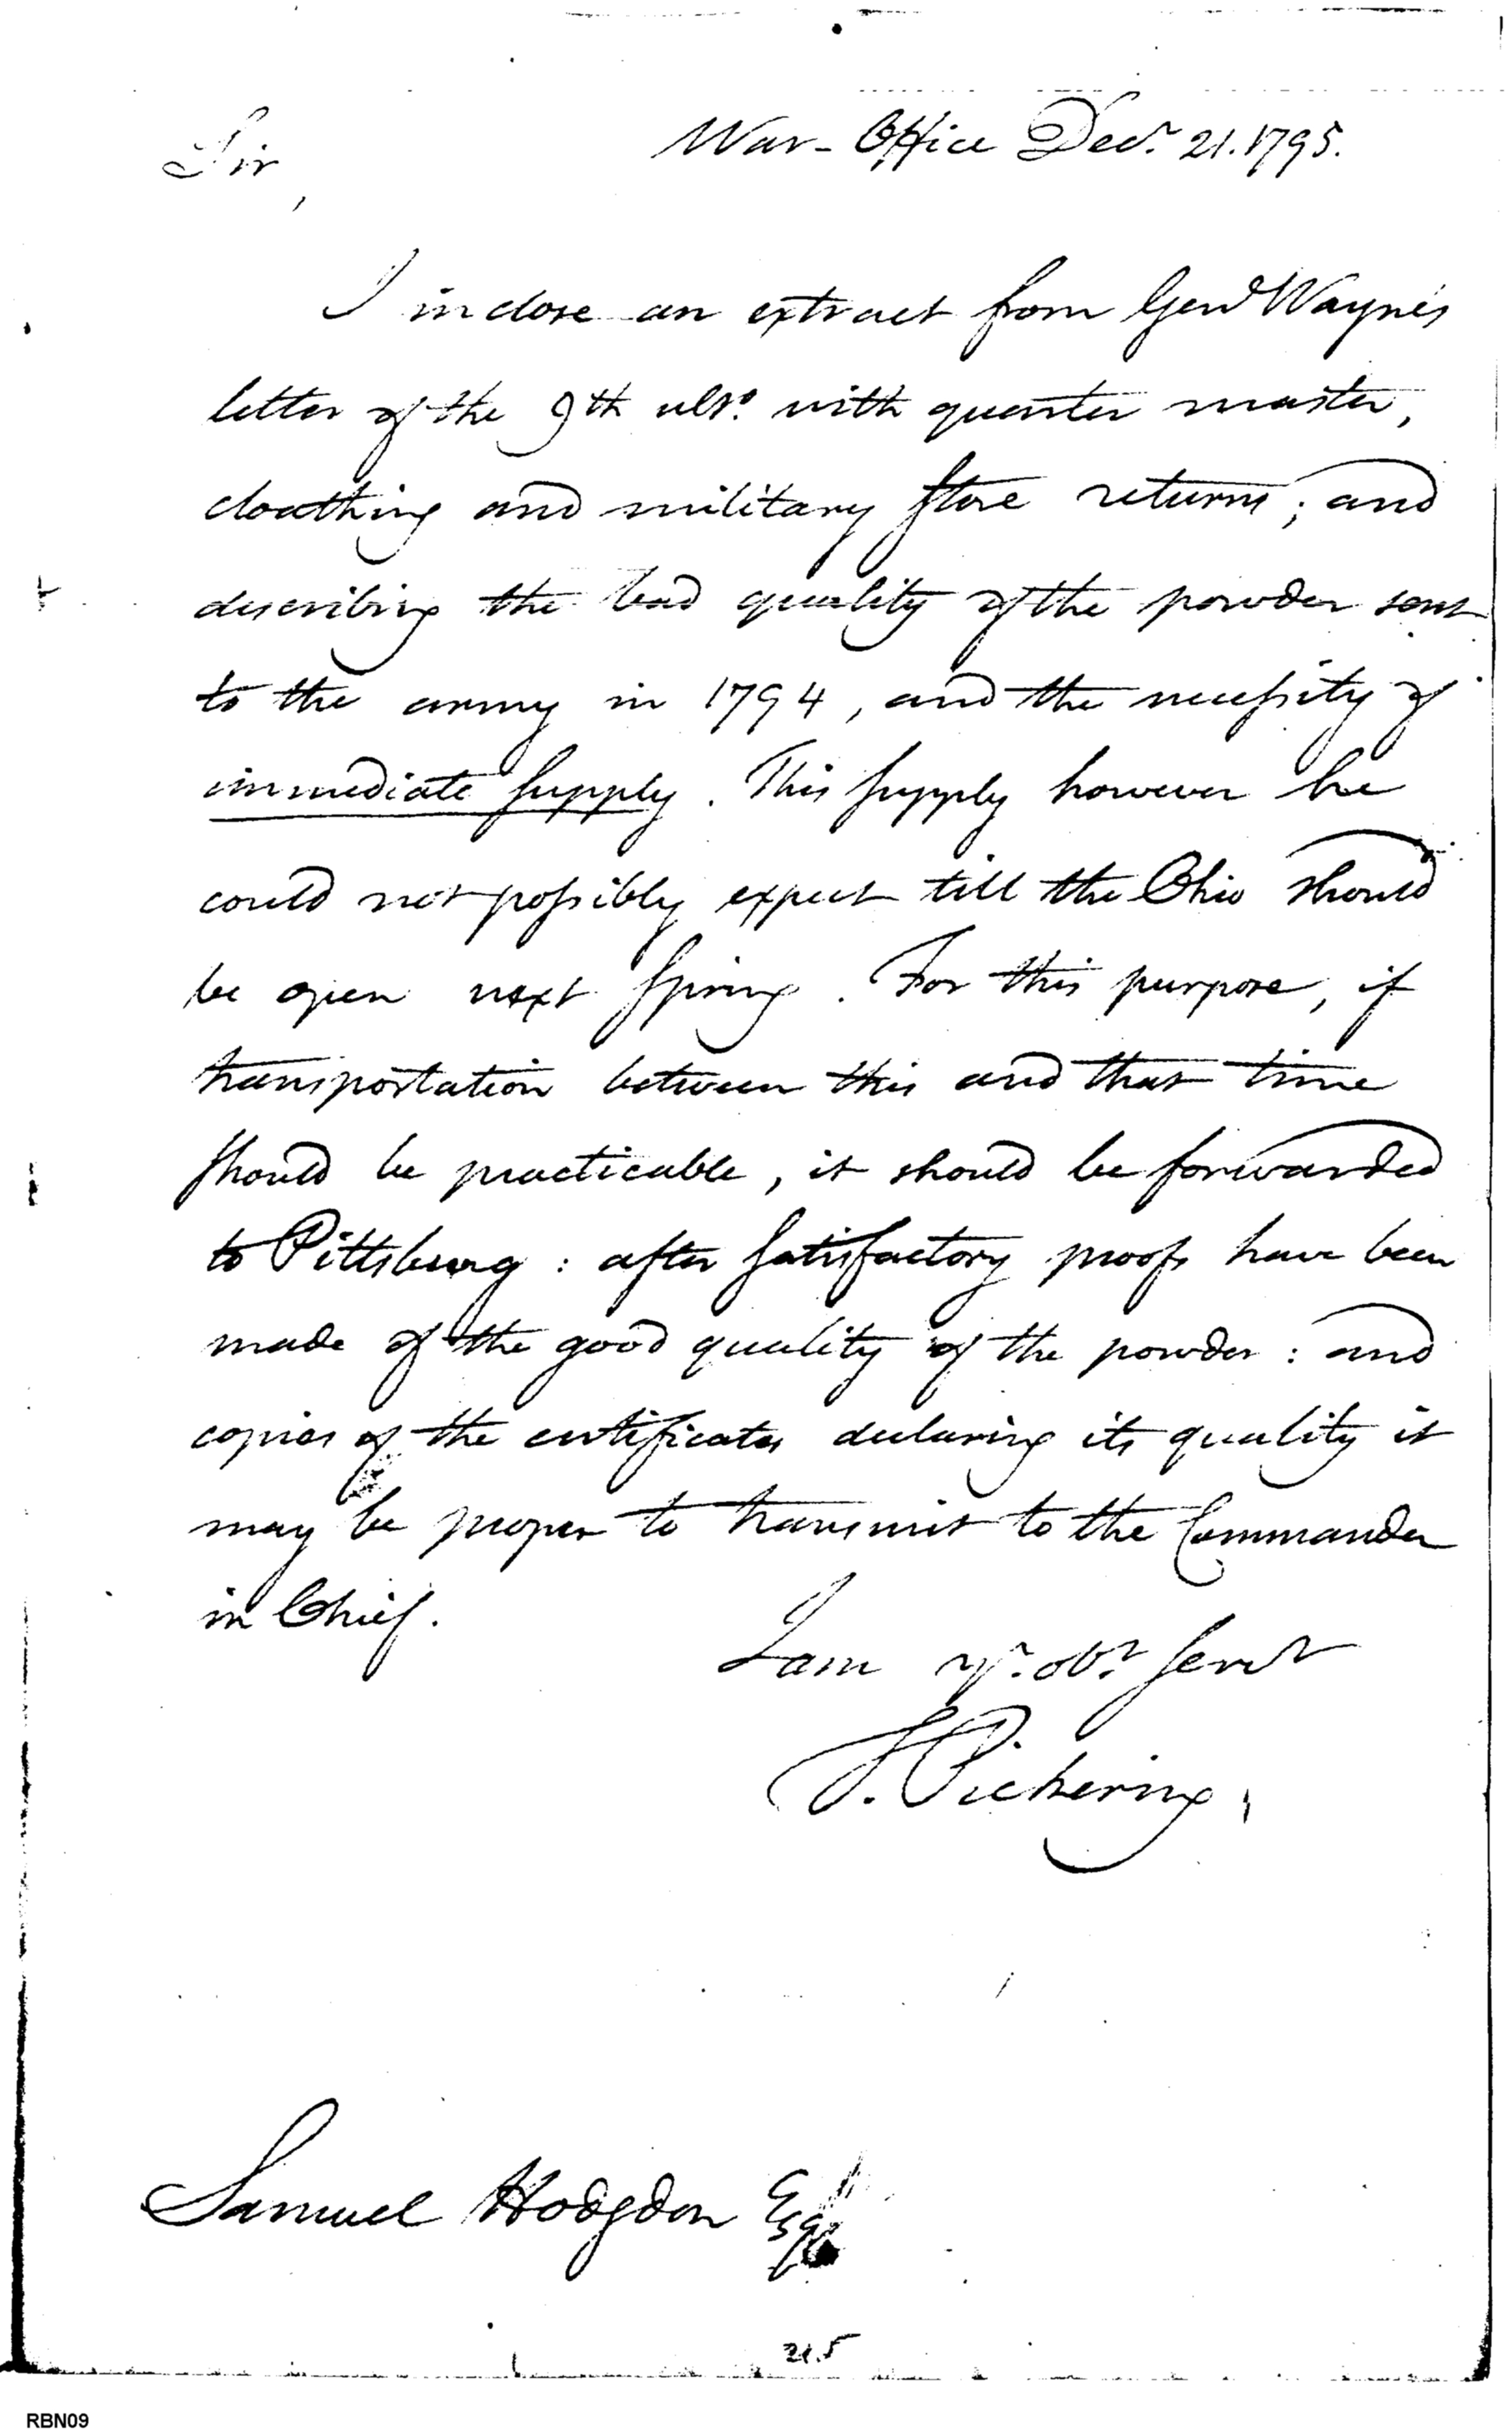 War-Office Decr. 21. 1795.
Sir,
I inclose an extract from Genl Wayne's
letter of the 9th ulto. with quarter master,
cloathing and military store returns; and
describing the bad quality of the powder sent
to the army in 1794, and the necessity of
immediate supply. This supply however he
could not possibly expect till the Ohio should
be open next spring. For this purpose, if
transportation between this and that time
should be practicable, it should be forwarded
to Pittsburg: after satisfactory proofs have been
made of the good quality of the powder: and
copies of the certificates declaring its quality it
may be proper to transmit to the Commander
in Chief.
I am yr. obt. servt
T. Pickering.
Samuel Hodgdon Esqr
215
RBN09